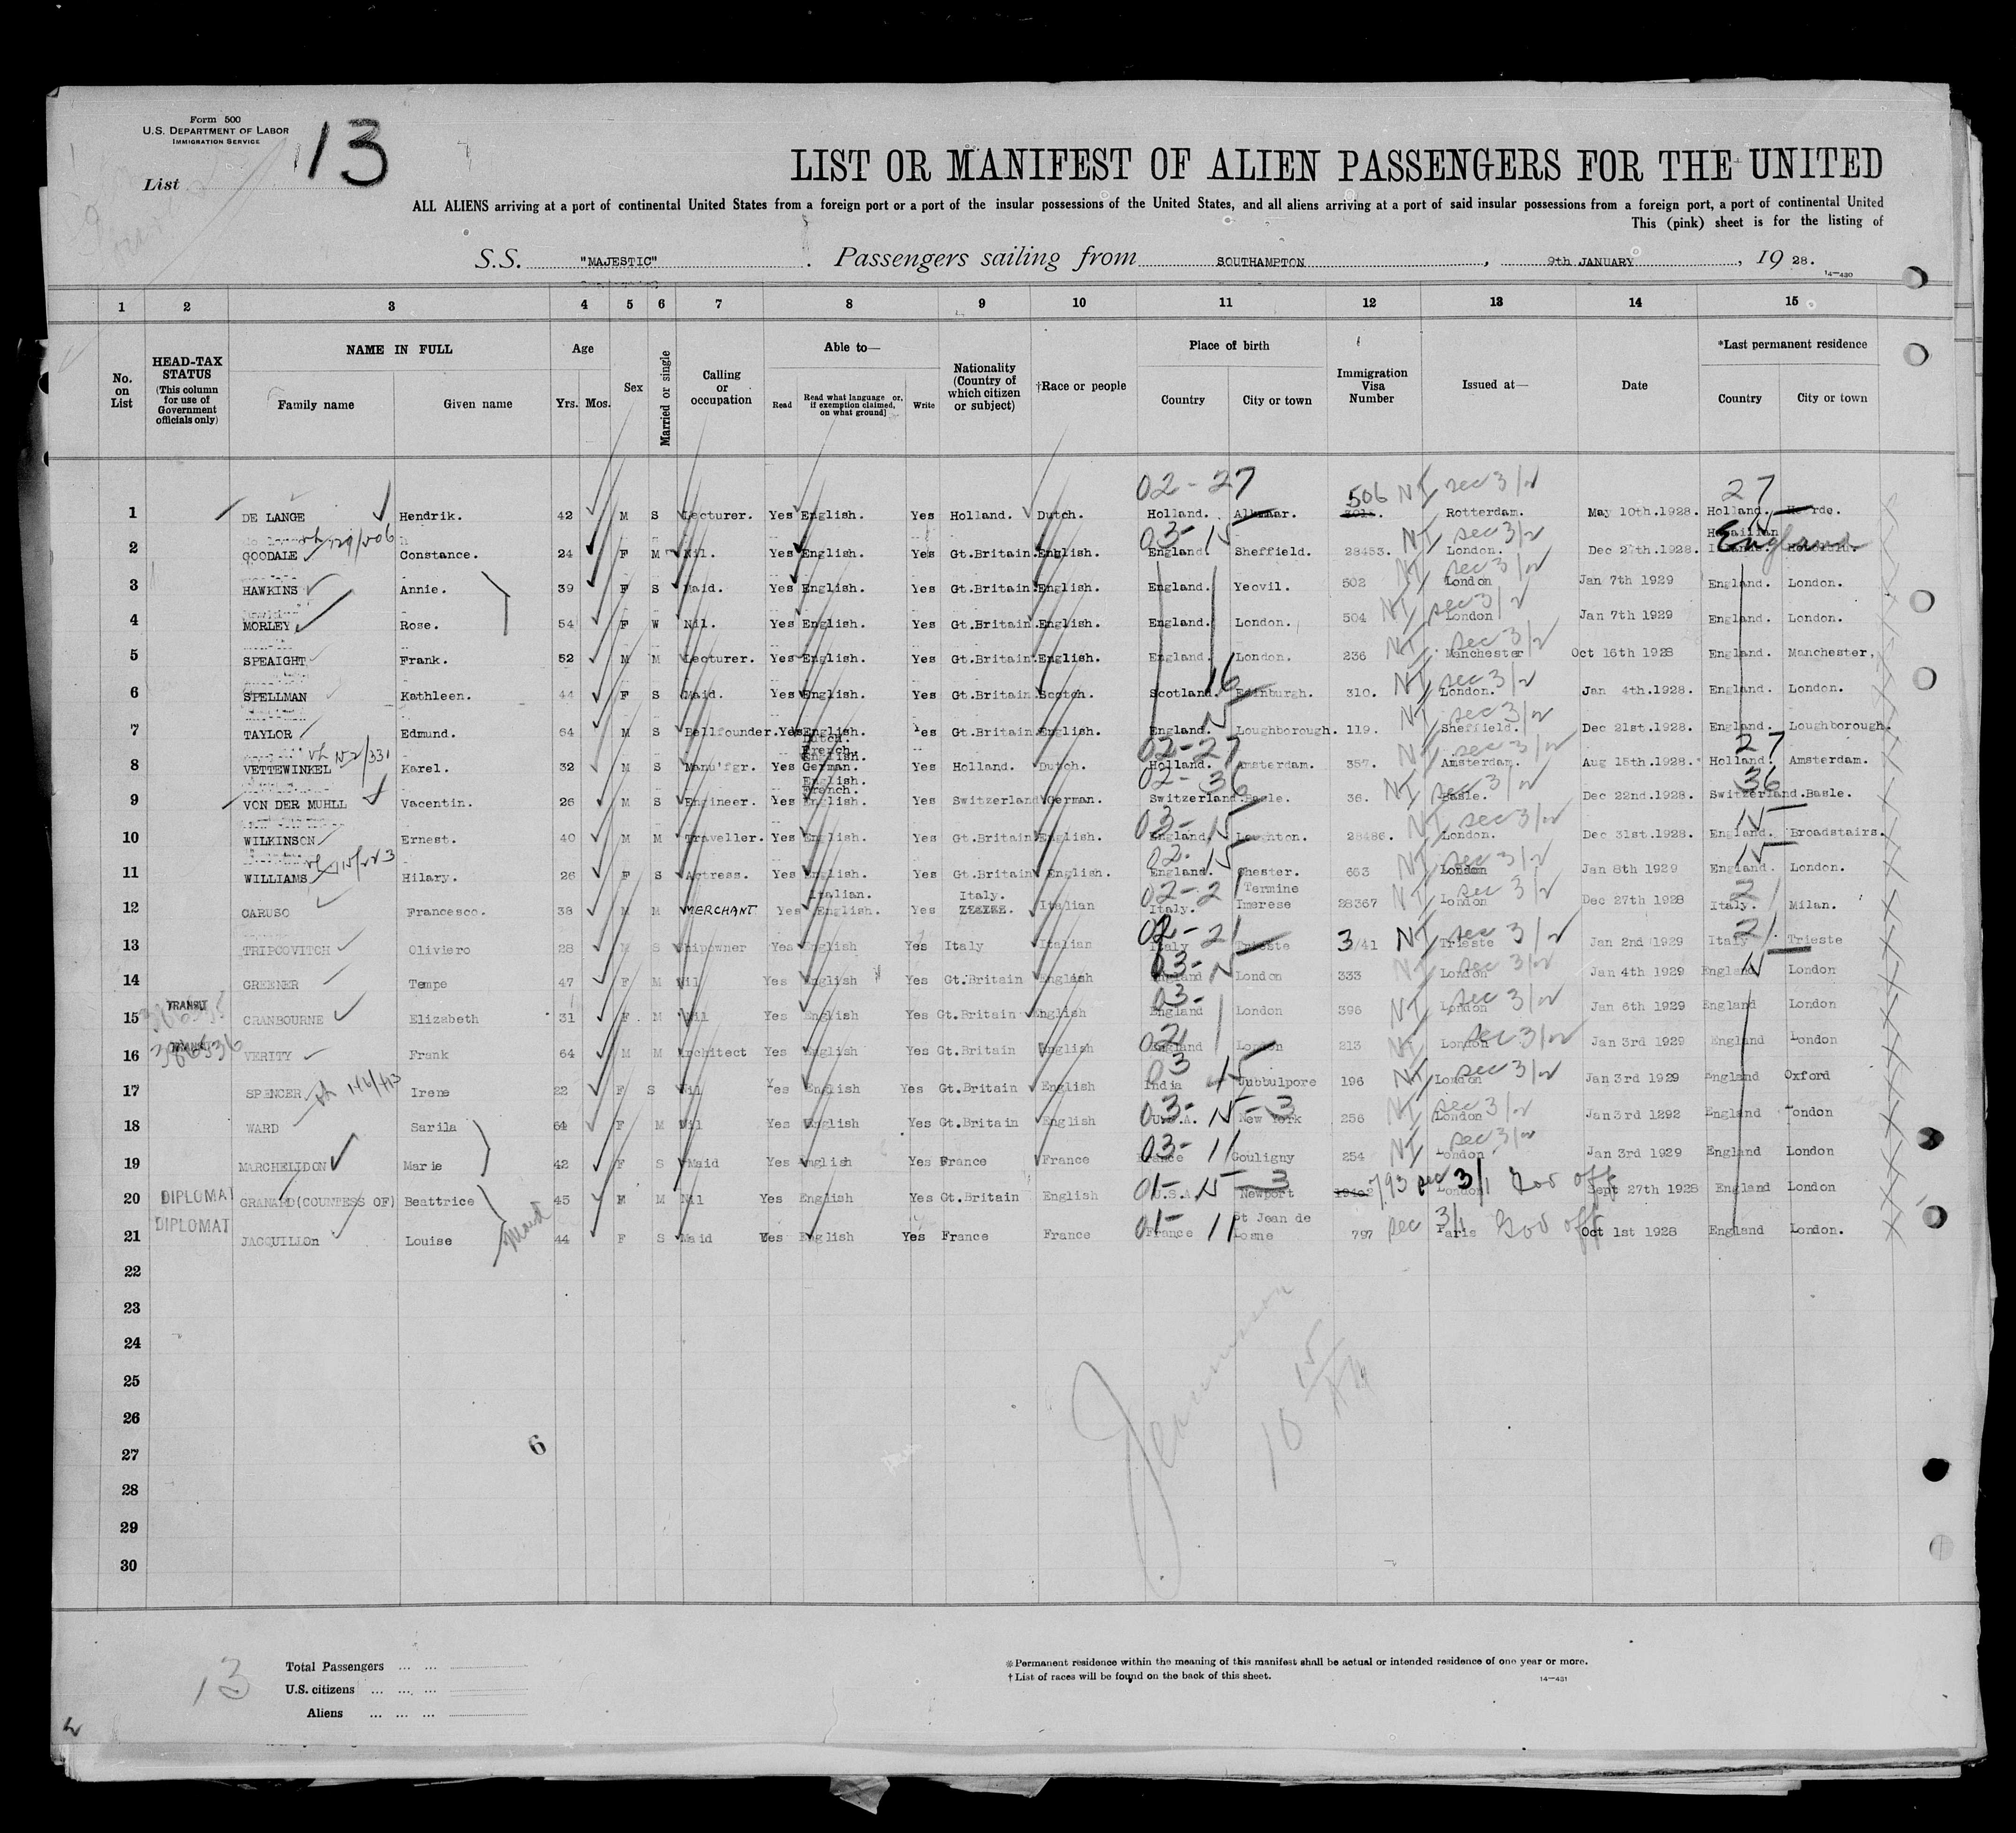 Form 500
U.S. DEPARTMENT OF LABOR
IMMIGRATION SERVICE
List 13
LIST OR MANIFEST OF ALIEN PASSENGERS FOR THE UNITED
ALL ALIENS arriving at a port of continental United States from a foreign port or a port of the insular possessions of the United States, and all aliens arriving at a port of said insular possessions from a foreign port, a port of continental United
This (pink) sheet is for the listing of
S.S. "MAJESTIC". Passengers sailing from SOUTHAMPTON, 9th JANUARY, 19 28.
14—430
1 2 3 4 5 6 7 8 9 10 11 12 13 14 15
No. on List
HEAD-TAX STATUS (This column for use of Government officials only)
NAME IN FULL
Family name Given name
Age
Yrs. Mos.
Sex
Married or single
Calling or occupation
Able to—
Read Read what language or, if exemption claimed, on what ground] Write
Nationality (Country of which citizen or subject)
†Race or people
Place of birth
Country City or town
Immigration Visa Number
Issued at—
Date
*Last permanent residence
Country City or town
02-27 506 NI sec 3/2 27
1 DE LANGE Hendrik. 42 M S Lecturer. Yes English. Yes Holland. Dutch. Holland. Alkmaar. Rotterdam. May 10th.1928. Holland.
03-15 NI sec 3/2
2 GOODALE Constance. 24 F M Nil. Yes English. Yes Gt.Britain. English. England. Sheffield. 28453. London. Dec 27th.1928. England
NI sec 3/2
3 HAWKINS Annie. 39 F S Maid. Yes English. Yes Gt.Britain. English. England. Yeovil. 502 London Jan 7th 1929 England. London.
NI sec 3/2
4 MORLEY Rose. 54 F W Nil. Yes English. Yes Gt.Britain. English. England. London. 504 London Jan 7th 1929 England. London.
NI sec 3/2
5 SPEAIGHT Frank. 52 M M Lecturer. Yes English. Yes Gt.Britain. English. England. London. 236 Manchester Oct 16th 1928 England. Manchester.
16 NI sec 3/2
6 SPELLMAN Kathleen. 44 F S Maid. Yes English. Yes Gt.Britain. Scotch. Scotland. Edinburgh. 310. London. Jan 4th.1928. England. London.
15 NI sec 3/2
7 TAYLOR Edmund. 64 M S Bellfounder. Yes English. Yes Gt.Britain. English. England. Loughborough. 119. Sheffield. Dec 21st.1928. England. Loughborough.
Dutch. French. English. 02-27 NI sec 3/2 27
8 VETTEWINKEL Karel. 32 M S Manu'fgr. Yes German. Yes Holland. Dutch. Holland. Amsterdam. 357. Amsterdam. Aug 15th.1928. Holland. Amsterdam.
English. French. 02-36 NI sec 3/2 36
9 VON DER MUHLL Vacentin. 26 M S Engineer. Yes English. Yes Switzerland German. Switzerland. Basle. 36. Basle. Dec 22nd.1928. Switzerland. Basle.
03-15 NI sec 3/2 15
10 WILKINSON Ernest. 40 M M Traveller. Yes English. Yes Gt.Britain English. England. Loughton. 28486. London. Dec 31st.1928. England. Broadstairs.
02-15 NI sec 3/2 15
11 WILLIAMS Hilary. 26 F S Actress. Yes English. Yes Gt.Britain English. England. Chester. 653 London Jan 8th 1929 England. London.
Italian. Italy. 02-21 Termine NI sec 3/2 21
12 CARUSO Francesco. 38 M M MERCHANT Yes English. Yes Italian Italy. Imerese 28367 London Dec 27th 1928 Italy. Milan.
02-21 NI sec 3/2 21
13 TRIPCOVITCH Oliviero 28 M S Shipowner Yes English Yes Italy Italian Italy Trieste 3/41 Trieste Jan 2nd 1929 Italy. Trieste
03-15 NI sec 3/2 15
14 GREENER Tempe 47 F M Nil Yes English Yes Gt.Britain English England London 333 London Jan 4th 1929 England London
TRANSIT 03- NI sec 3/2
15 CRANBOURNE Elizabeth 31 F M Nil Yes English Yes Gt.Britain English England London 396 London Jan 6th 1929 England London
386536 02 NI sec 3/2
16 VERITY Frank 64 M M Architect Yes English Yes Gt.Britain English England London 213 London Jan 3rd 1929 England London
03 15 NI sec 3/2
17 SPENCER Irene 22 F S Nil Yes English Yes Gt.Britain English India Jubbulpore 196 London Jan 3rd 1929 England Oxford
03-15-3 NI sec 3/2
18 WARD Sarila 64 F M Nil Yes English Yes Gt.Britain English U.S.A. New York 256 London Jan 3rd 1292 England London
03-11 NI sec 3/2
19 MARCHELIDON Marie 42 F S Maid Yes English Yes France France France Couligny 254 London Jan 3rd 1929 England London
DIPLOMAT 01-15-3 793 sec 3/1 Gov off
20 GRANARD (COUNTESS OF) Beattrice 45 F M Nil Yes English Yes Gt.Britain English U.S.A. Newport London Sept 27th 1928 England London
DIPLOMAT Maid 01-11 St Jean de sec 3/1 Gov off
21 JACQUILLOn Louise 44 F S Maid Yes English Yes France France France Losne 797 Paris Oct 1st 1928 England London.
22
23
24
25
26
27
28
29
30
6
10 15 AM
13
Total Passengers ... ...
U.S. citizens ... ... ...
Aliens ... ... ...
*Permanent residence within the meaning of this manifest shall be actual or intended residence of one year or more.
†List of races will be found on the back of this sheet.
14—431